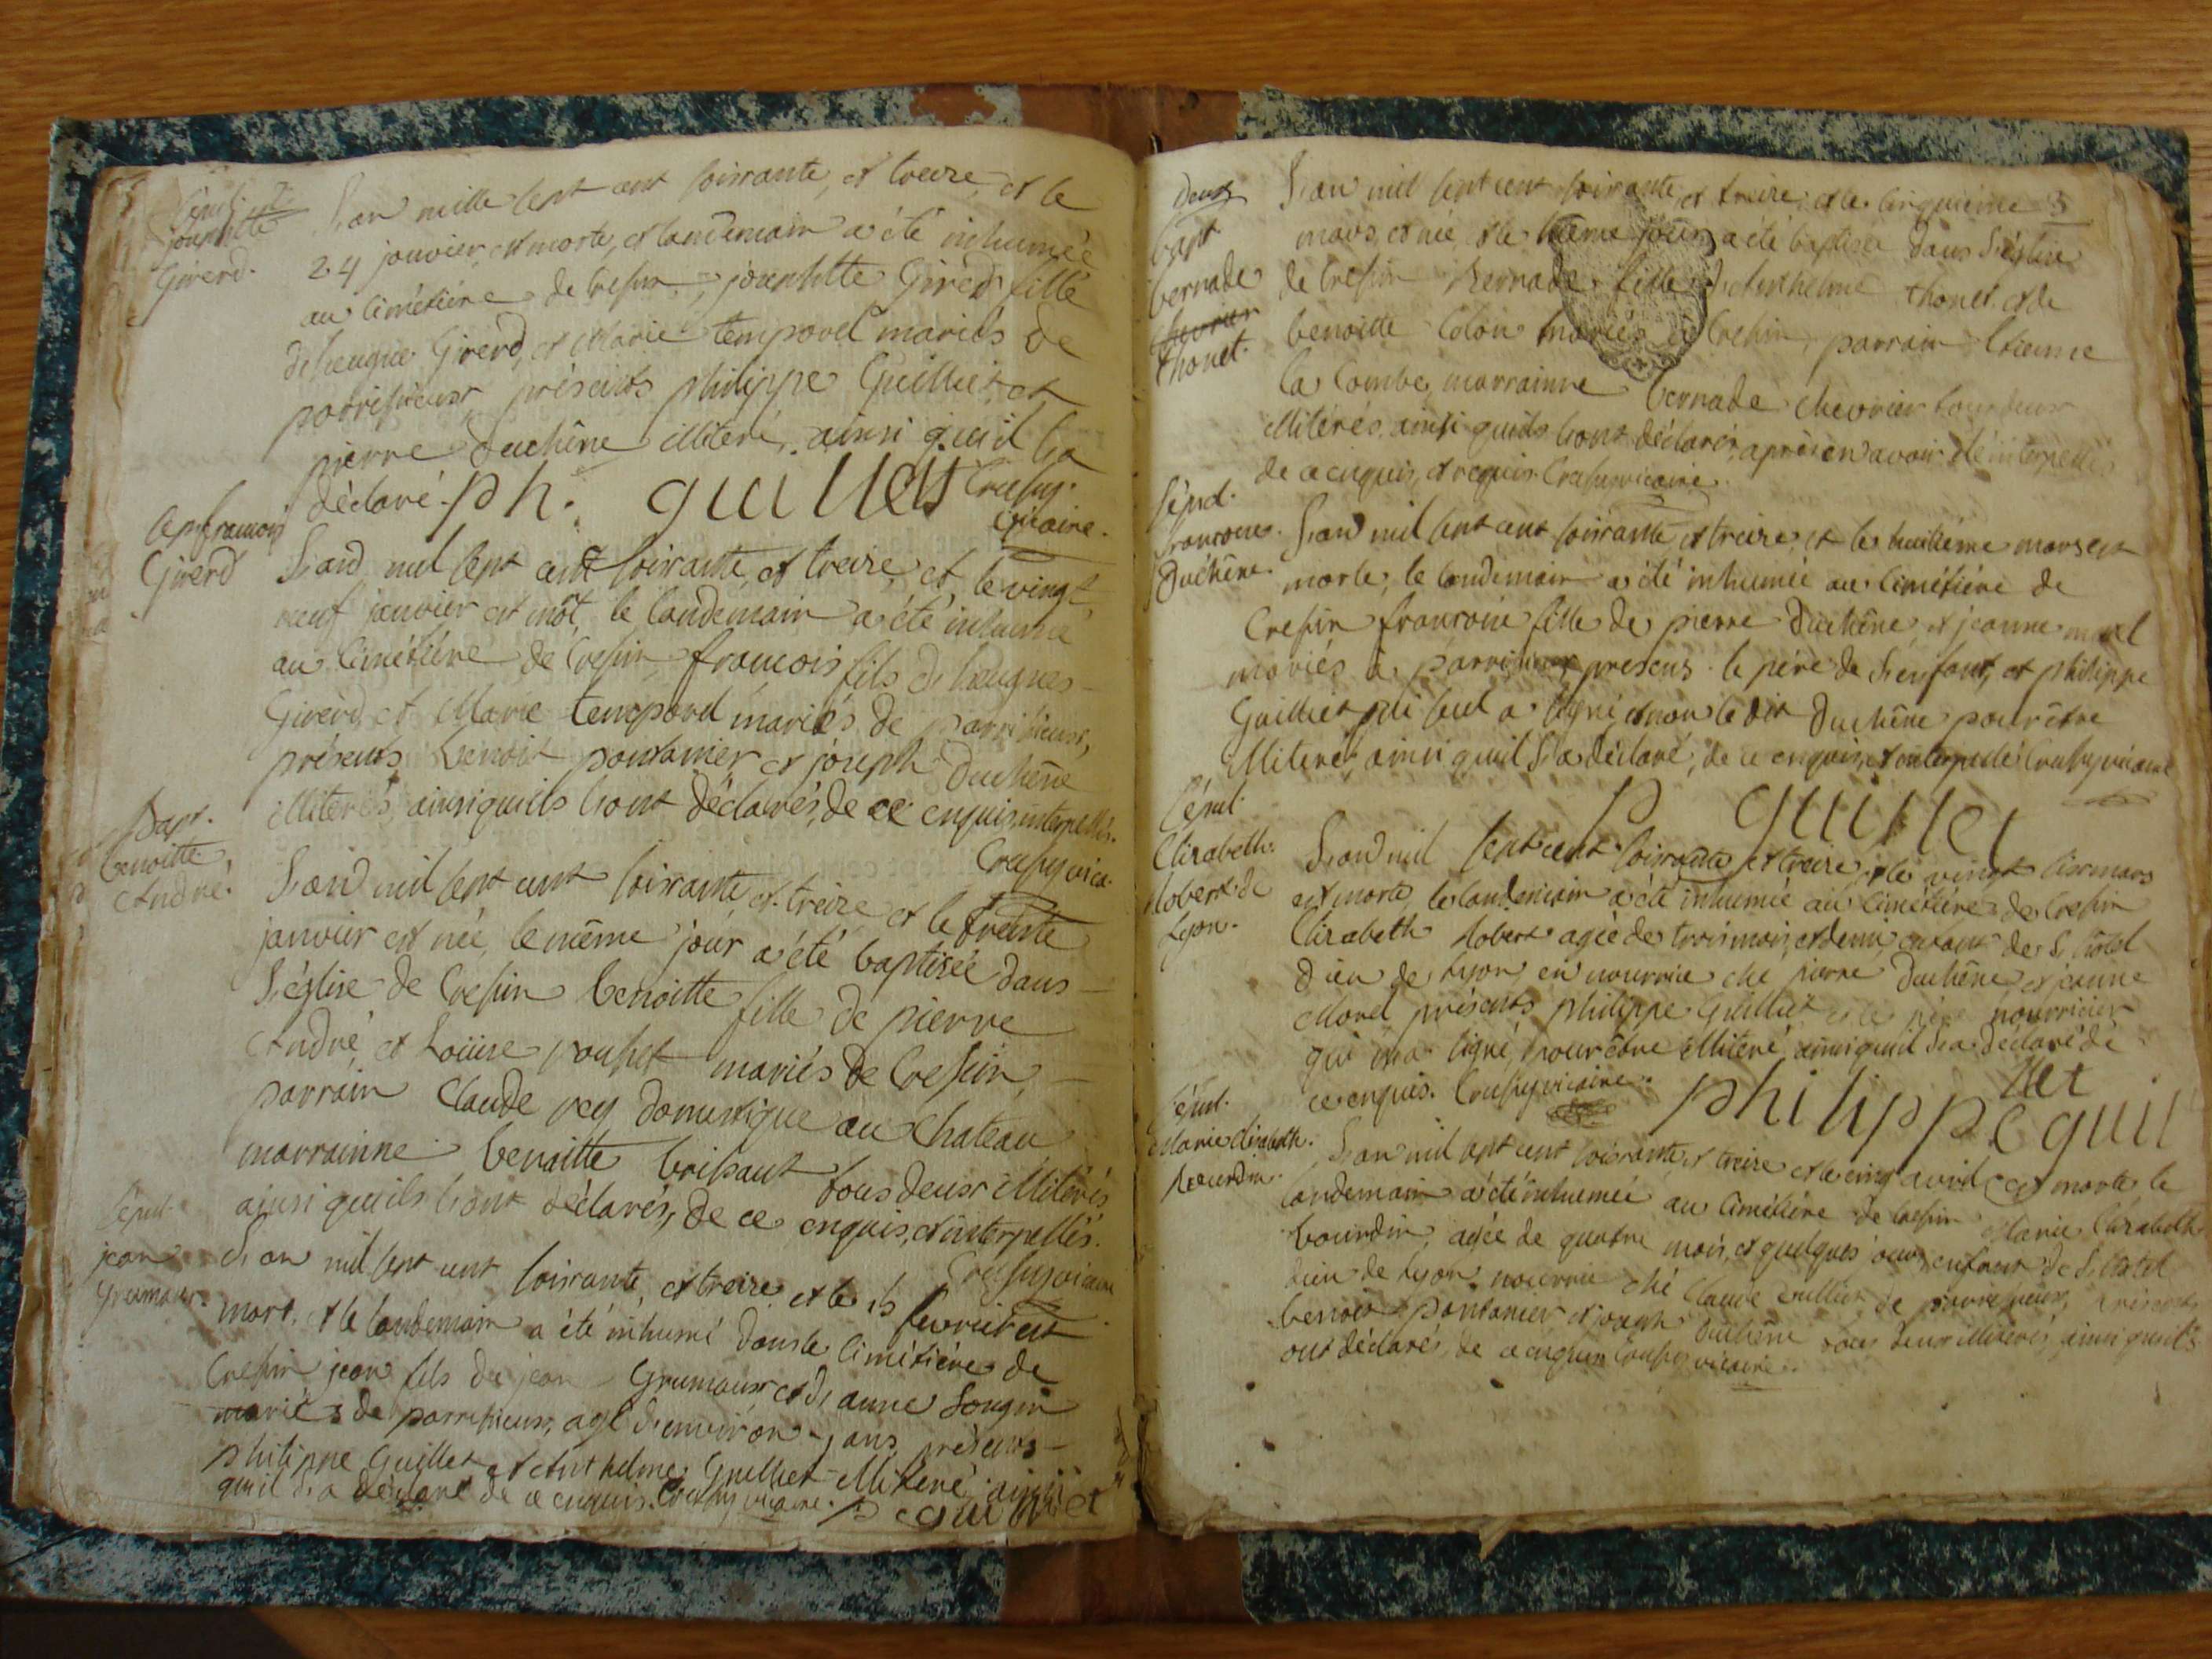 Sépul. de
josephtte
Girerd.
L'an mille sept cent soixante, et treize, et le
24 janvier, est morte, et landemain a été inhumée
au cimétière de Cressin, josephtte Girerd fille
de heugue Girerd, et Marie temporel mariés de
parrissieux présents philippe Guilliet, et
pierre duchêne illiteré, ainsi qu'il l'a
déclaré. ph. guillet Crussy.
vicaire.
Sep. francois
Girerd
L'an mil sept cent soixante, et treize, et, le vingt
neuf janvier est môt, le landemain a été inhumé
au cimétiére de Cressin, francois fils d'heugues
Girerd, et Marie temporel mariés de parrissieux,
présents benoit pontanier et joseph duchêne
illiterés, ainsi quils l'ont déclarés, de ce enquis, interpellés.
Crussy vica.
Bapt.
benoitte
André.
L'an mil sept cent soixante et treize et le trente
janvier est née, le même jour a été baptisée dans
l'église de Cressin benoitte fille de pierre
André, et Louise mariés de Cressin,
parrain Claude rey domestique au Chateau
marrainne benoitte brissaut tous deux illiterés
ainsi qu'ils l'ont déclarés, de ce enquis, et interpellés.
Crussy vicaire
Sépul.
jean
Grumaux.
L'an mil sept cent soixante, et treize et le fevrier est
mort, et le landemain a été inhumé dans le cimétiére de
Cressin jean fils de jean Grumaux et d'anne Sougin
mariés de parrissieux, agé d'environ ans, présents
philippe Guillet et Anthelme Guilliet illiteré, ainsi
qu'il l'a déclaré de ce enquis. Crussy vicaire. p guilliet
Deux
bapt
bernade
chevrier
thonet.
L'an mil sept cent soixante, et treize, et le cinquième 3
mars, est née, et le même jour, a été baptisée dans l'église
de Cressin Bernade, fille d'Anthelme thonet et de
benoitte Colon mariés de Cressin, parrain Etienne
la Combe, marrainne bernade chevrier tous deux
illitérés, ainsi quils l'ont déclarés, après en avoir été interpellés
de ce enquis, et requis. Crussy vicaire.
Sépul.
francoise
Duchêne.
L'an mil sept cent soixante, et treize, et le huitième mars est
morte, le landemain a été inhumée au cimétière de
Cressin francoise fille de pierre Duchêne, et jeanne morel
mariés à parrissieux presens le père de l'enfant, et philippe
Guilliet qui seul a signé et non le dit duchêne pour être
illiteré, ainsi quil l'a déclaré, de ce enquis, et interpellé Crussy vicaire
P guillet
Sépul.
Elizabeth
Robert de
Lyon.
L'an mil sept cent soixante et treize, et le vingt six mars
est morte, le landemain a été inhumée au cimétière de Cressin
Elizabeth Robert agée de trois mois, et demi, enfant de l'hôtel
Dieu de Lyon, en nourrice ché pierre Duchêne, et jeanne
Morel présents philippe Guilliet et le père nourricier
qui n'a signé, pour être illiteré, ainsi quil l'a déclaré de
ce enquis. Crussy vicaire.
philippe guil
llet
Sépul.
Marie Elizabeth.
Bourdin.
L'an mil sept cent soixante, et treize et le cinq avril est morte, le
landemain a été inhumée au cimétière de Cressin Marie Elizabeth
bourdin, agée de quatre mois, et quelques jours, enfant de l'hotel
dieu de Lyon nourrie ché Claude de parrissieux, présents,
benoit pontanier et joseph duchêne tous deux illiterés, ainsi quils
ont déclarés, de ce enquis Crussy vicaire.